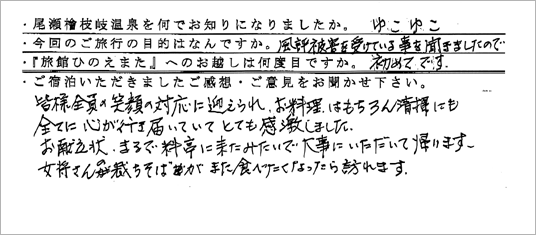 ・尾瀬檜枝岐温泉を何でお知りになりましたか。 ゆこゆこ
・今回のご旅行の目的はなんですか。風評被害を受けている事を聞きましたので
・『旅館ひのえまた』へのお越しは何度目ですか。 初めてです。
・ご宿泊いただきましたご感想・ご意見をお聞かせ下さい。
皆様全員の笑顔の対応に迎えられ、お料理はもちろん清掃にも
全てに心が行き届いていてとても感激しました。
お献立状、まるで料亭に来たみたいで大事にいただいて帰ります。
女将さんの裁ちそばがまた食べたくなったら訪れます。